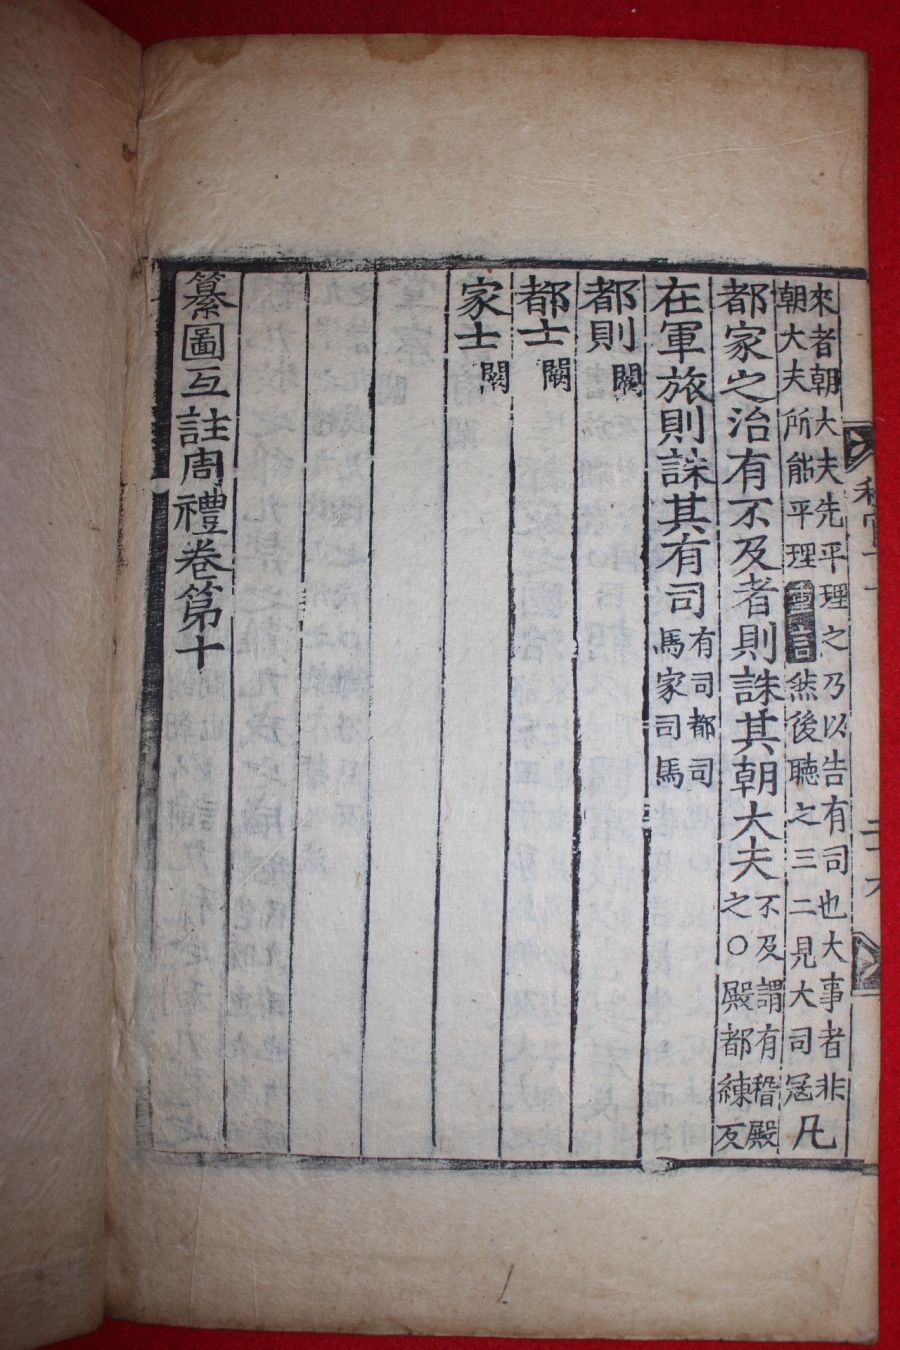 來者朝大夫先平理之乃以告有司也大事者非
朝大夫所能平理重言然後聽之三二見大司冦
凡
都家之治有不及者則誅其朝大夫
不及謂有稽殿
之〇殿都練反
在軍旅則誅其有司
有司都司
馬家司馬
都則闕
都士闕
家士闕
纂圖互註周禮卷第十